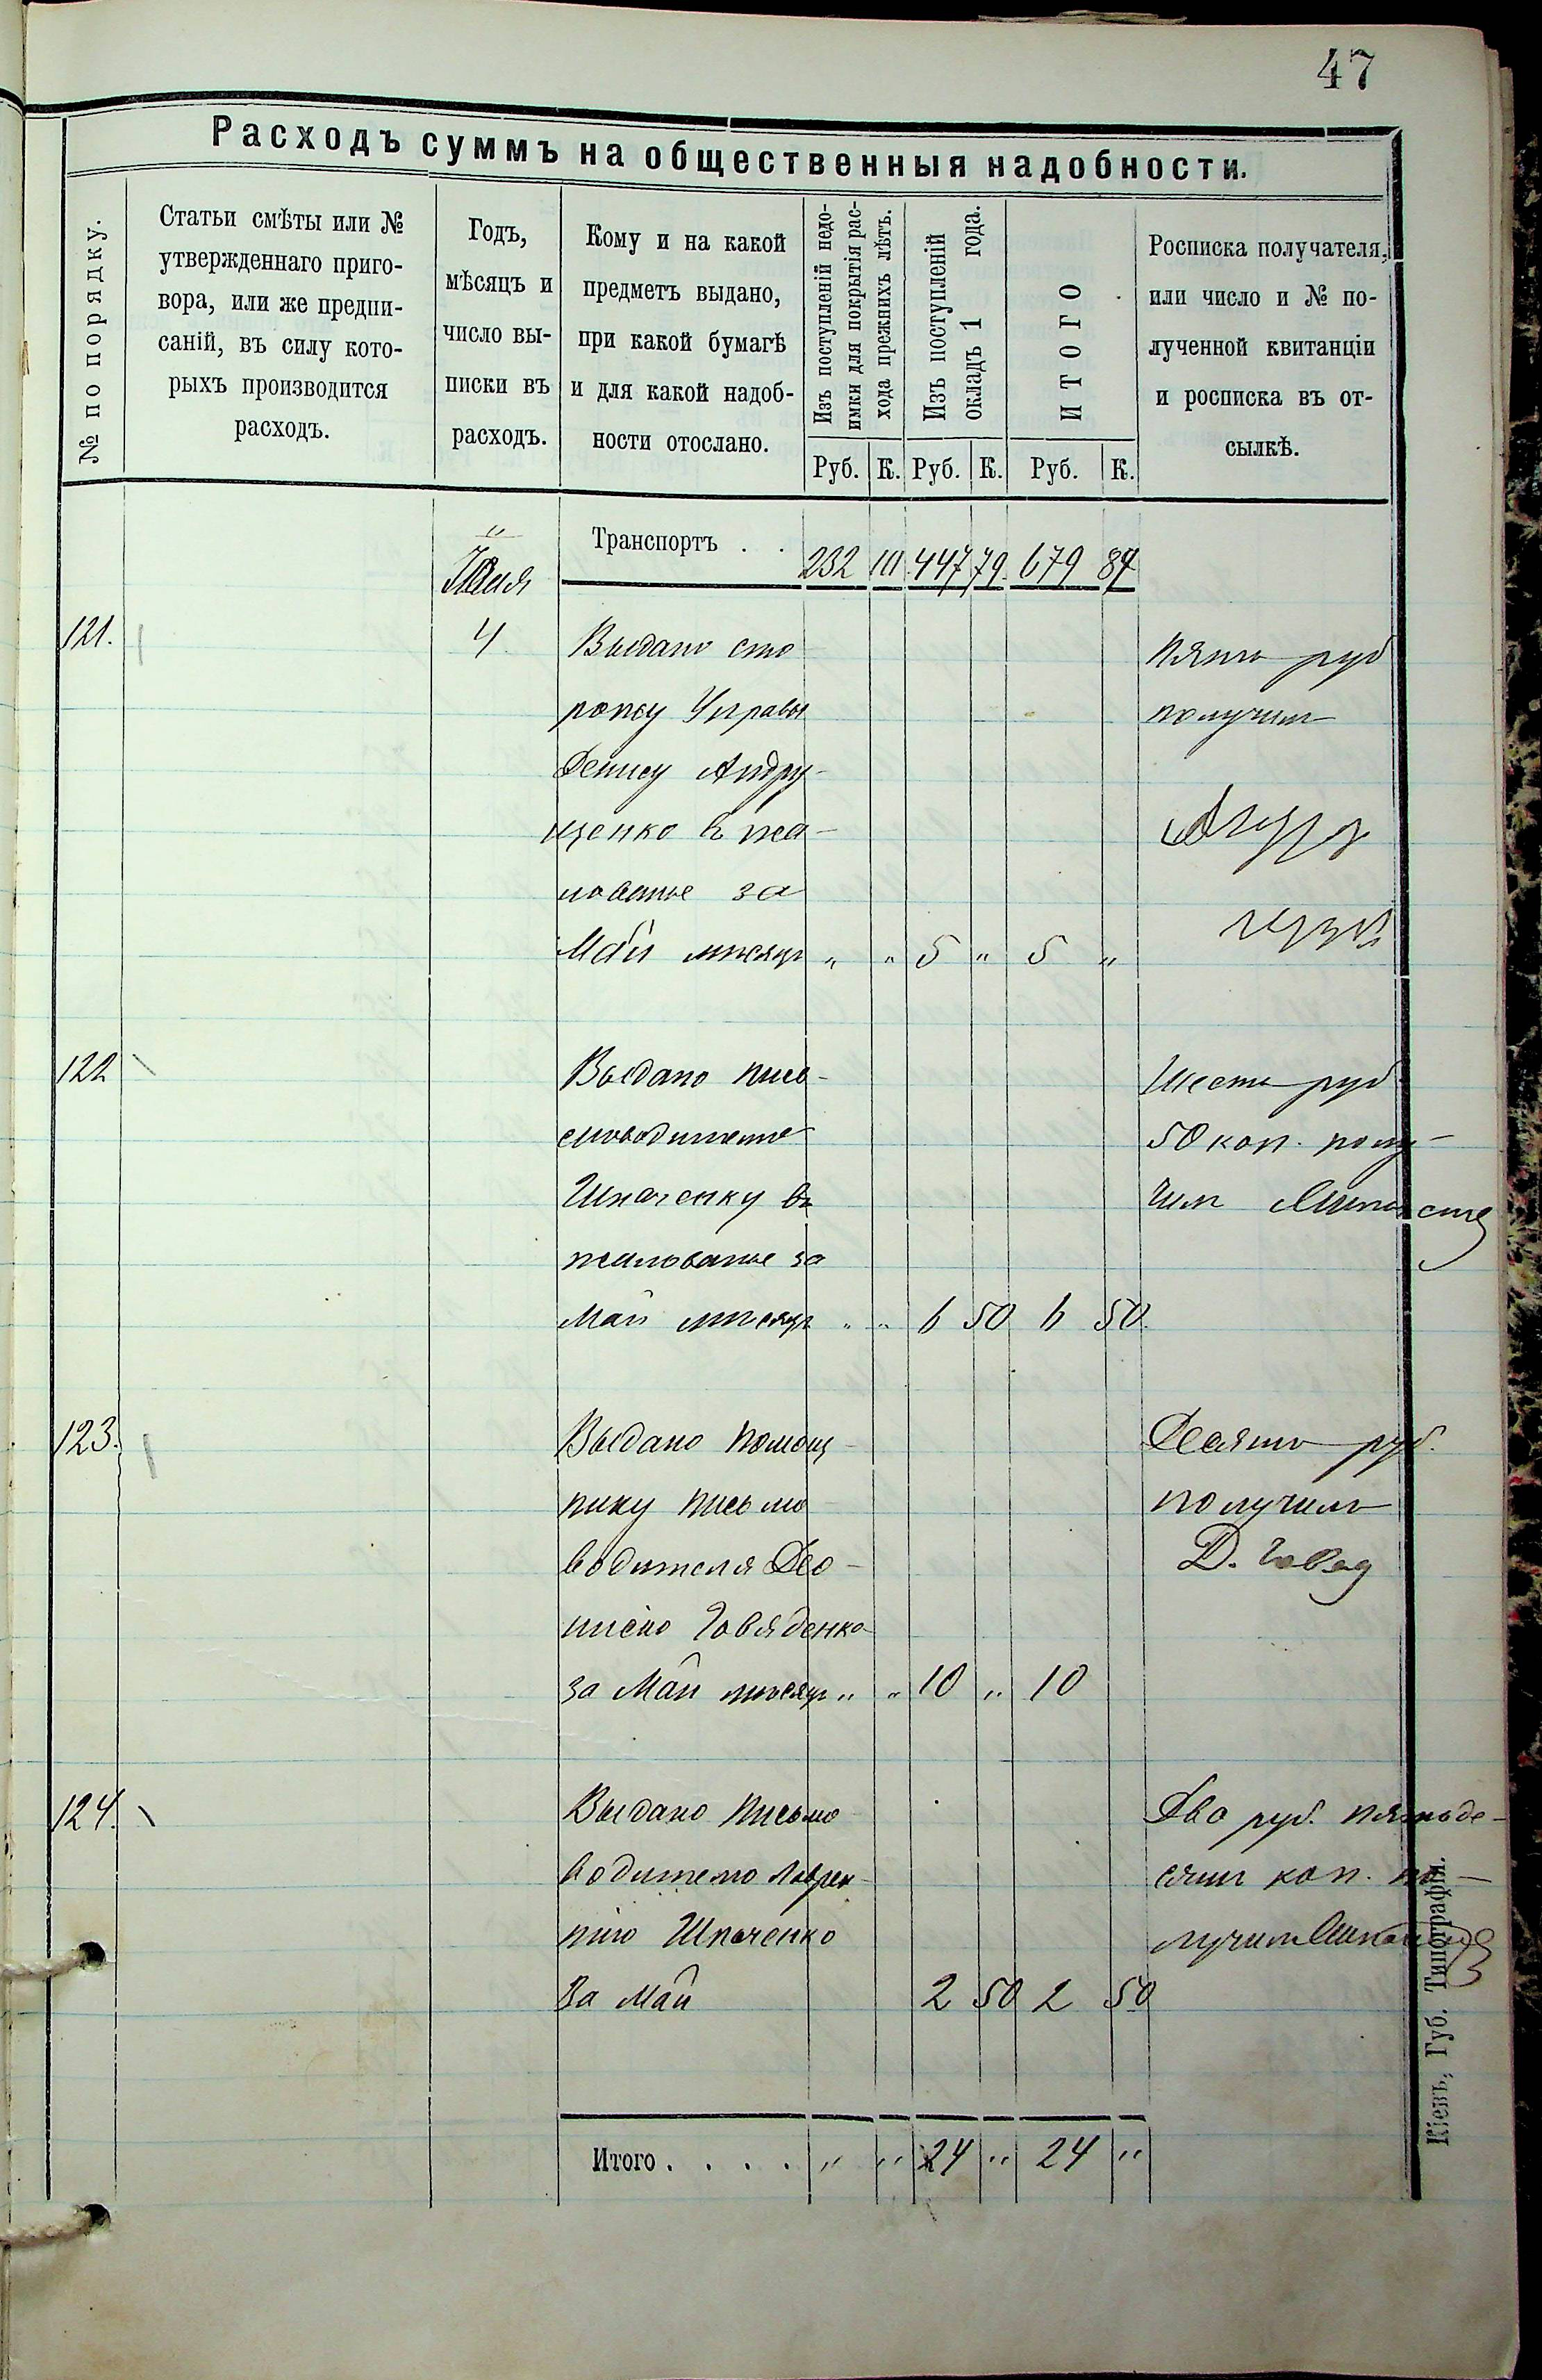 47
Расходъ суммъ на общественныя надобности.
№ по порядку.
Статьи смѣты или №
утвержденнаго приго-
вора, или же предпи-
саній, въ силу кото-
рыхъ производится
расходъ.
Годъ,
мѣсяцъ и
число вы-
писки въ
расходъ.
Кому и на какой
предметъ выдано,
при какой бумагѣ
и для какой надоб-
ности отослано.
Изъ поступленій недо-
имки для покрытія рас-
хода прежнихъ лѣтъ.
Изъ поступленій
окладъ 1 года.
ИТОГО
Росписка получателя,
или число и № по-
лученной квитанціи
и росписка въ от-
сылкѣ.
Руб. К. Руб. К. Руб. К.
Транспортъ . . 232 10 447 79 679 84
121. 4 Выдано сто
рожу Управы
Денису Андру-
щенко въ жа-
лованье за
Май мѣсяцъ " " 5 " 5 "
Пять руб
получилъ
122 Выдано пись-
моводителю
Шпаченку въ
жалованье за
Май мѣсяцъ " " 6 50 6 50
Шесть руб
50 коп. полу-
чилъ
123. Выдано помощ-
нику письмо
водителя Део-
нисію Говяденко
за Май мѣсяцъ " " 10 " 10
Десять руб.
получилъ
Д. Говяд
124. Выдано письмо
водителю Лаврен-
тію Шпаченко
За Май 2 50 2 50
Два руб. пятьде-
сятъ коп. по-
лучилъ
Итого . . . . " " 24 " 24 "
Кіевъ, Губ. Типографія.